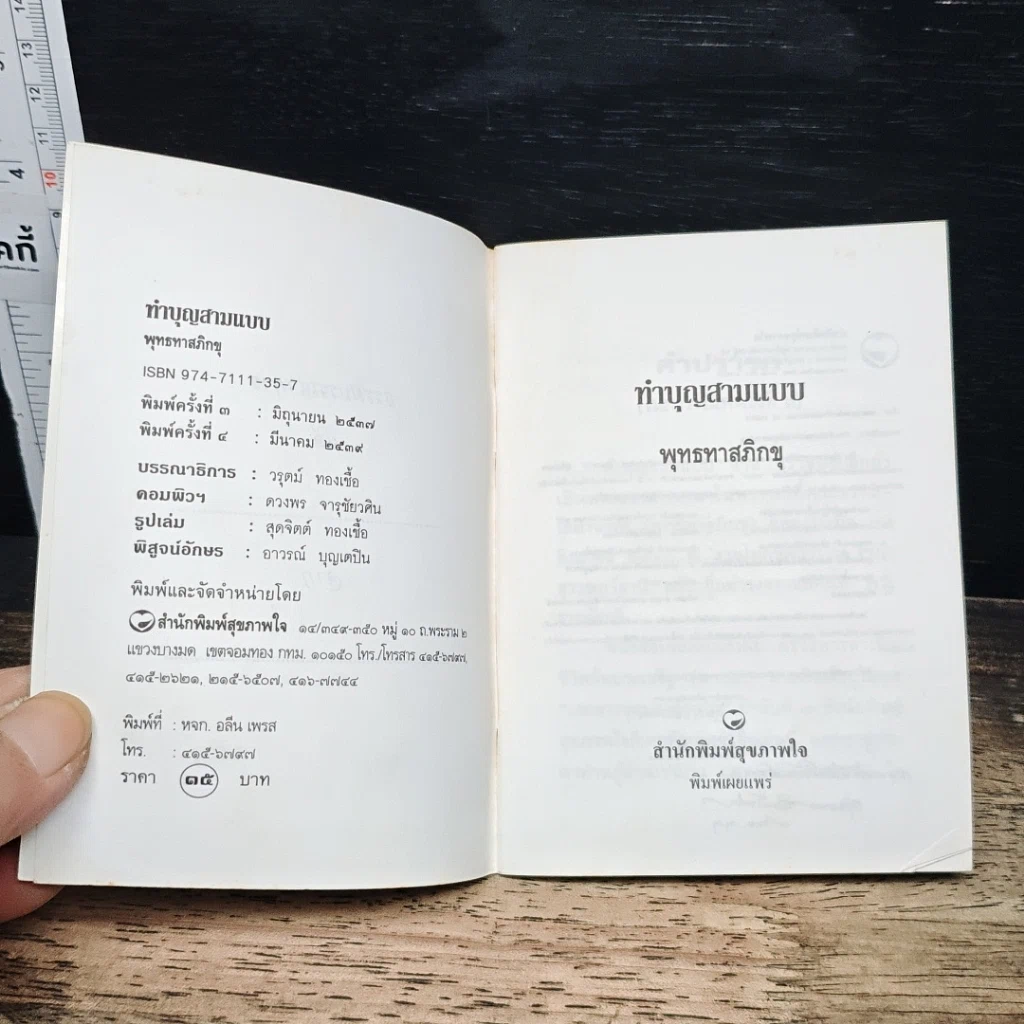 ทำบุญสามแบบ
พุทธทาสภิกขุ
ISBN 974-7111-35-7
พิมพ์ครั้งที่ ๓ : มิถุนายน ๒๕๓๗
พิมพ์ครั้งที่ ๔ : มีนาคม ๒๕๓๙
บรรณาธิการ : วรุตม์ ทองเชื้อ
คอมพิวฯ : ดวงพร จารุชัยวศิน
รูปเล่ม : สุดจิตต์ ทองเชื้อ
พิสูจน์อักษร : อาวรณ์ บุญเตปิน
พิมพ์และจัดจำหน่ายโดย
สำนักพิมพ์สุขภาพใจ ๑๔/๓๔๙-๓๕๐ หมู่ ๑๐ ถ.พระราม ๒
แขวงบางมด เขตจอมทอง กทม. ๑๐๑๕๐ โทร./โทรสาร ๔๑๕-๖๗๙๗,
๔๑๕-๒๖๒๑, ๒๑๕-๖๕๐๗, ๔๑๖-๗๗๔๔
พิมพ์ที่ : หจก. อลีน เพรส
โทร. : ๔๑๕-๖๗๙๗
ราคา ๑๕ บาท
ทำบุญสามแบบ
พุทธทาสภิกขุ
สำนักพิมพ์สุขภาพใจ
พิมพ์เผยแพร่